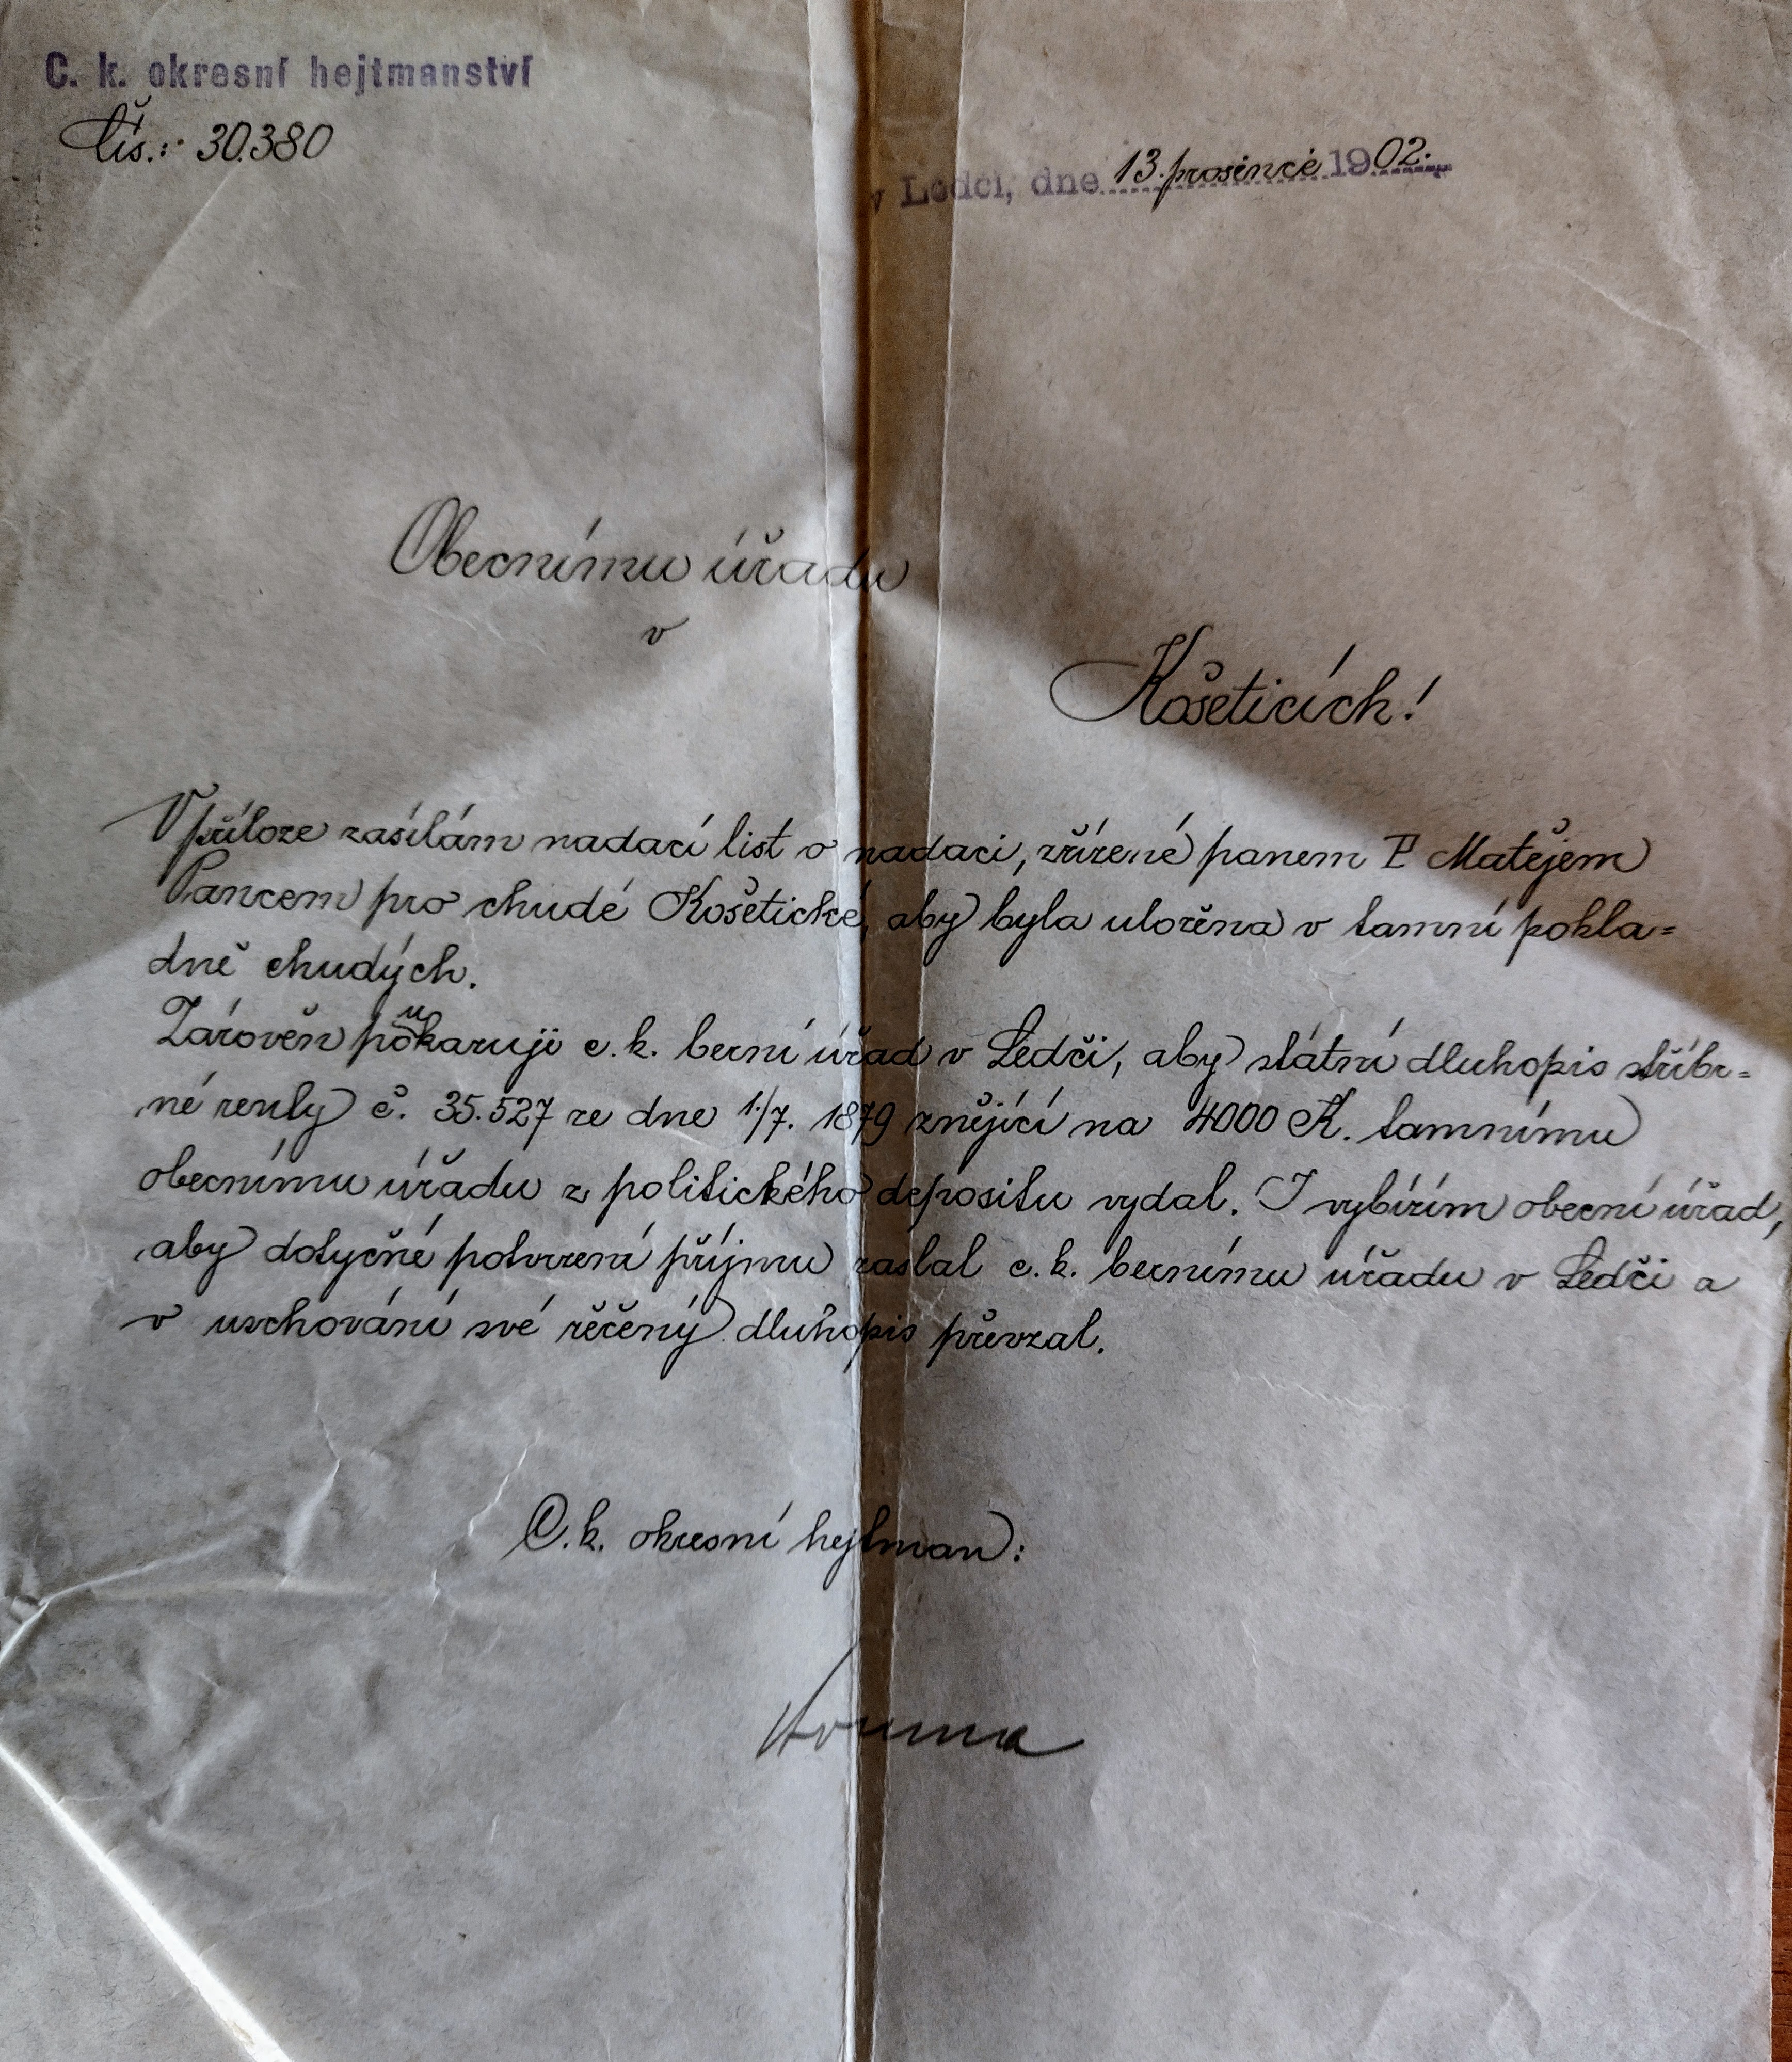 C. k. okresní hejtmanství
Čís.: 30.380
v Ledči, dne 13. prosince 1902.
Obecnímu úřadu
v
Košeticích!
V příloze zasílám nadací list o nadaci, zřízené panem P. Matějem
Pancem pro chudé Košetické, aby byla uložena v tamní pokla=
dně chudých.
Zároveň poukazuji c. k. berní úřad v Ledči, aby státní dluhopis stříbr=
né renty č. 35.527 ze dne 1./7. 1879 znějící na 4000 K. tamnímu
obecnímu úřadu z politického depositu vydal. I vybízím obecní úřad,
aby dotyčné potvrzení příjmu zaslal c. k. bernímu úřadu v Ledči a
v uschování své řečený dluhopis převzal.
C. k. okresní hejtman: